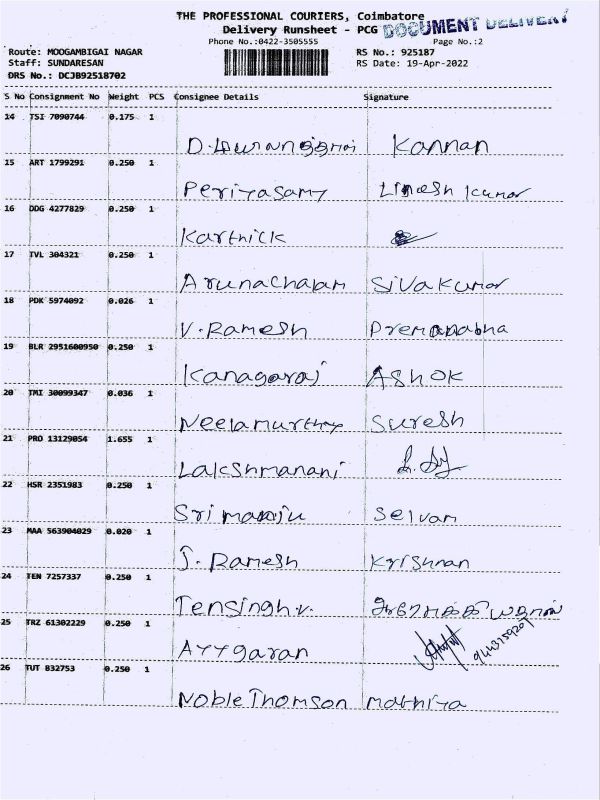 THE PROFESSIONAL COURIERS, Coimbatore
Delivery Runsheet - PCG DOCUMENT DELIVERY
Phone No.:0422-3505555 Page No.:2
Route: MOOGAMBIGAI NAGAR RS No.: 925187
Staff: SUNDARESAN RS Date: 19-Apr-2022
DRS No.: DCJB92518702
S No Consignment No Weight PCS Consignee Details Signature
14 TSI 7090744 0.175 1
Kannan
15 ART 1799291 0.250 1
Periyasamy Linesh kumar
16 DDG 4277829 0.250 1
Karthick
17 TVL 304321 0.250 1
Arunachalam Sivakumar
18 PDK 5974092 0.026 1
V. Ramesh Premanabha
19 BLR 2951600950 0.250 1
Kanagaraj ASHOK
20 TMI 30099347 0.036 1
Neelamurthy Suresh
21 PRO 13129054 1.655 1
Lakshmanani
22 HSR 2351983 0.250 1
Sri manju Selvam
23 MAA 563904029 0.020 1
J. Ramesh Krishnan
24 TEN 7257337 0.250 1
Tensingh.v.
25 TRZ 61302229 0.250 1
Ayygaran
26 TUT 832753 0.250 1
Noble Thomson Mathiya